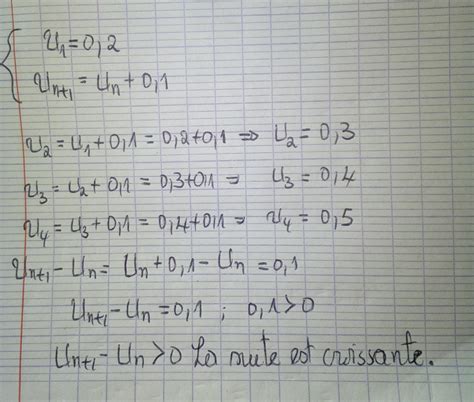 U₁ = 0,2
Uₙ₊₁ = Uₙ + 0,1
U₂ = U₁ + 0,1 = 0,2 + 0,1 ⇒ U₂ = 0,3
U₃ = U₂ + 0,1 = 0,3 + 0,1 ⇒ U₃ = 0,4
U₄ = U₃ + 0,1 = 0,4 + 0,1 ⇒ U₄ = 0,5
Uₙ₊₁ - Uₙ = Uₙ + 0,1 - Uₙ = 0,1
Uₙ₊₁ - Uₙ = 0,1 ; 0,1 > 0
Uₙ₊₁ - Uₙ > 0 La suite est croissante.